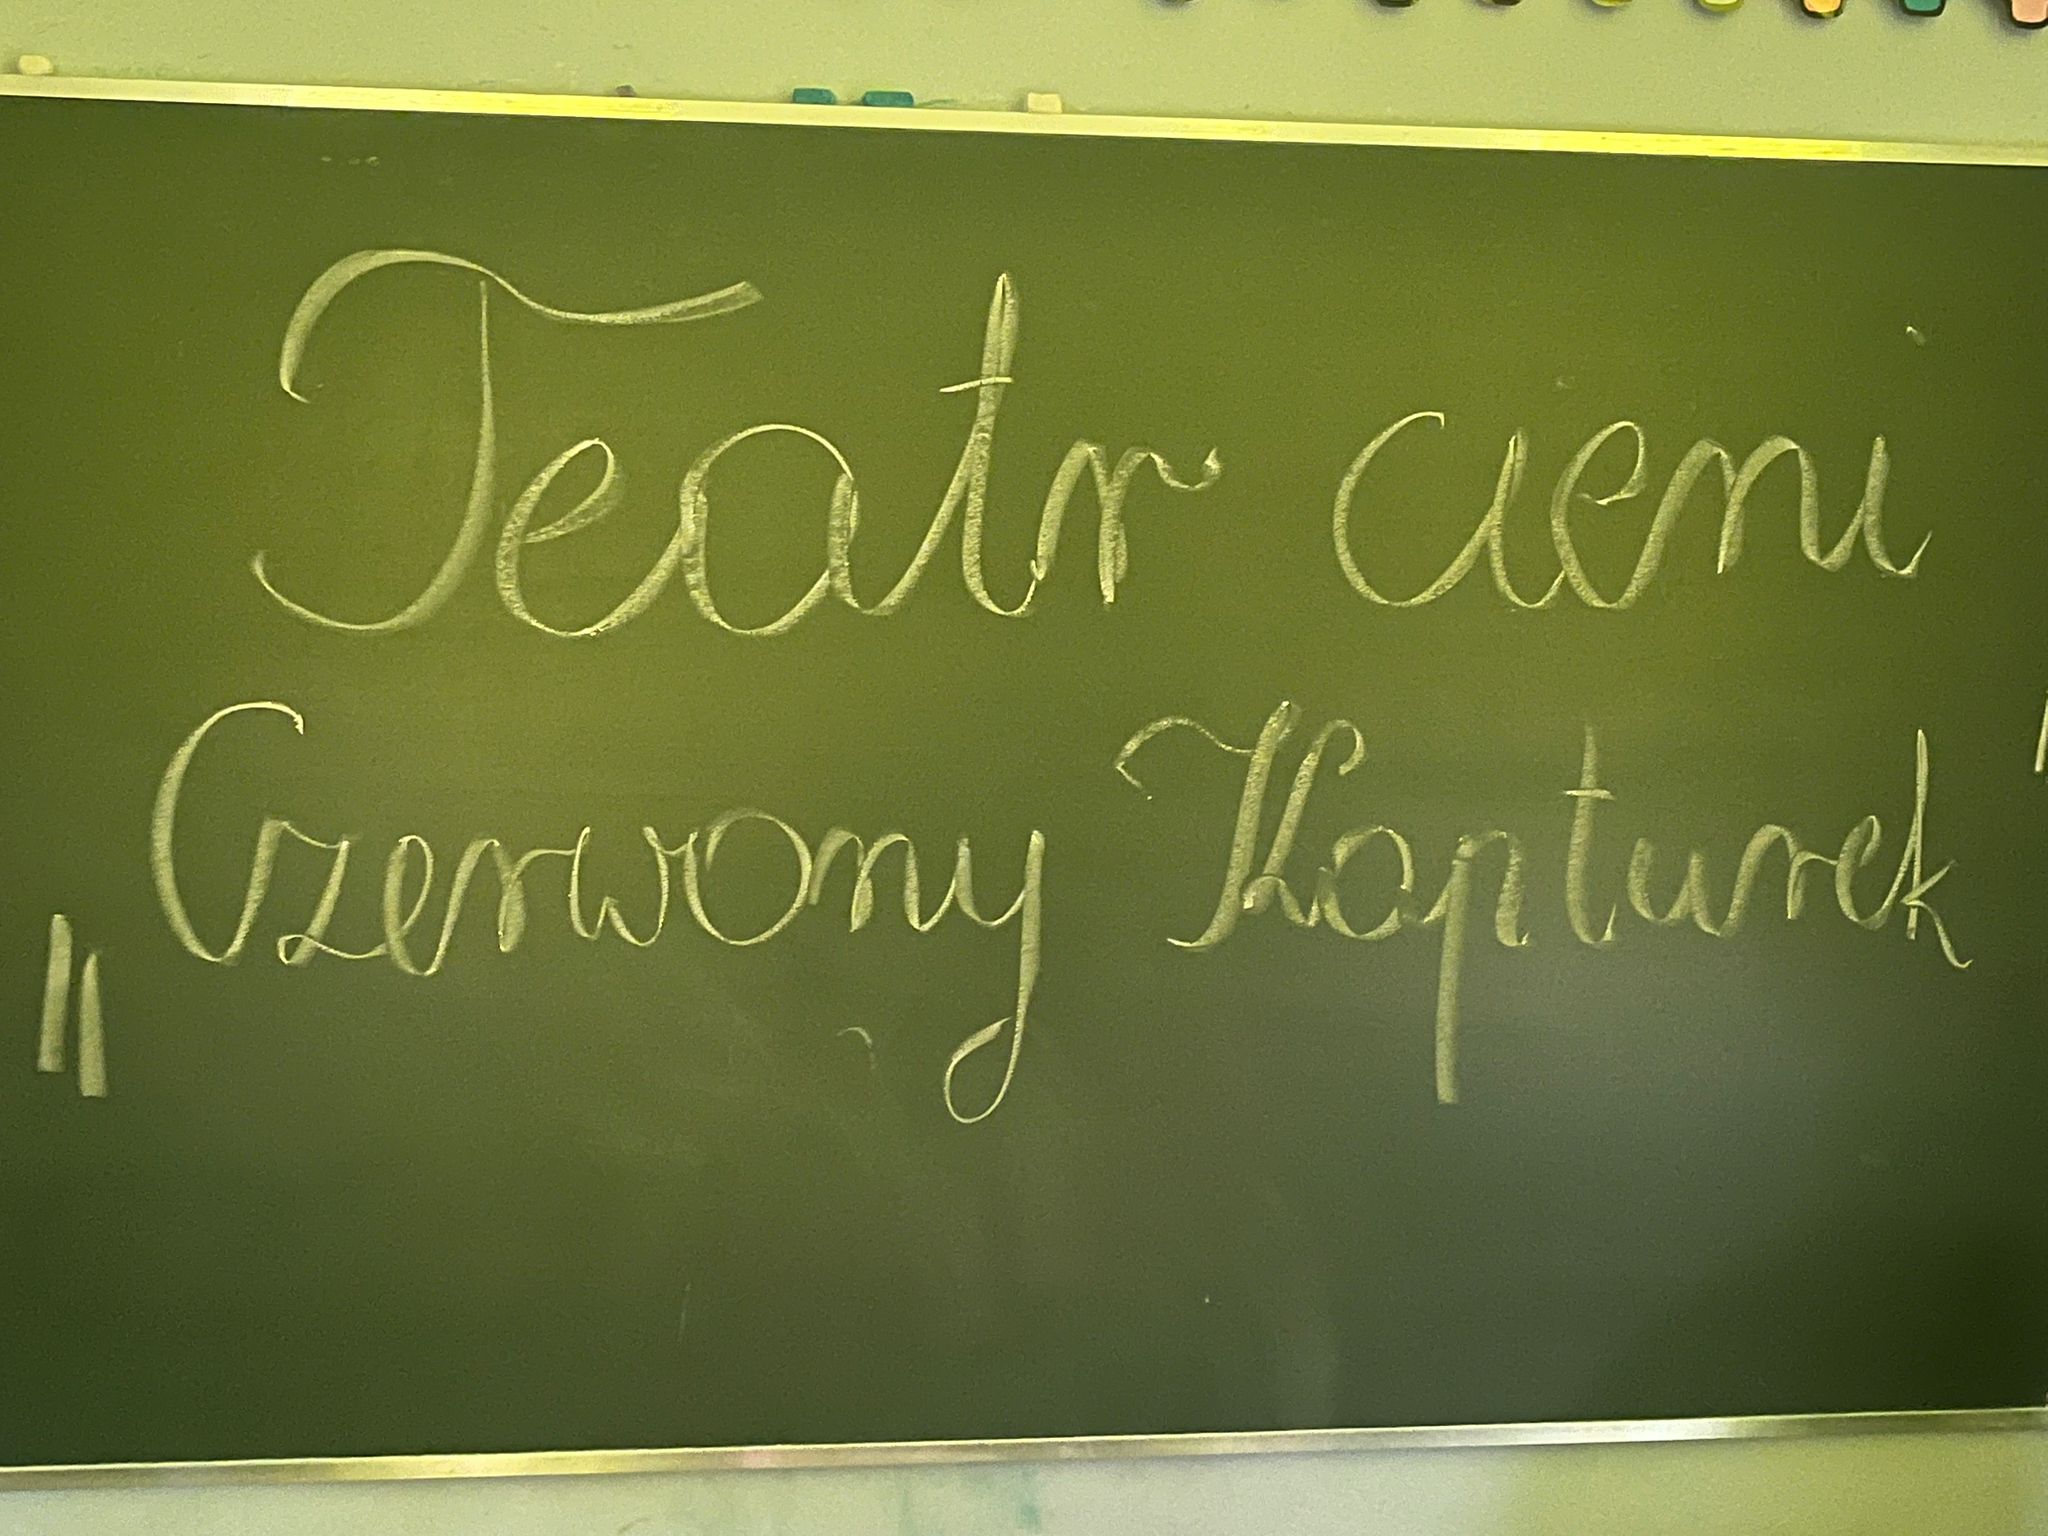 Teatr cieni
„Czerwony Kapturek"